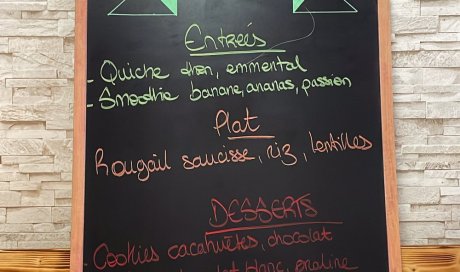 Entrées
- Quiche thon, emmental
- Smoothie banane, ananas, passion
Plat
Rougail saucisse, riz, lentilles
DESSERTS
- Cookies cacahuètes, chocolat
blanc, praline